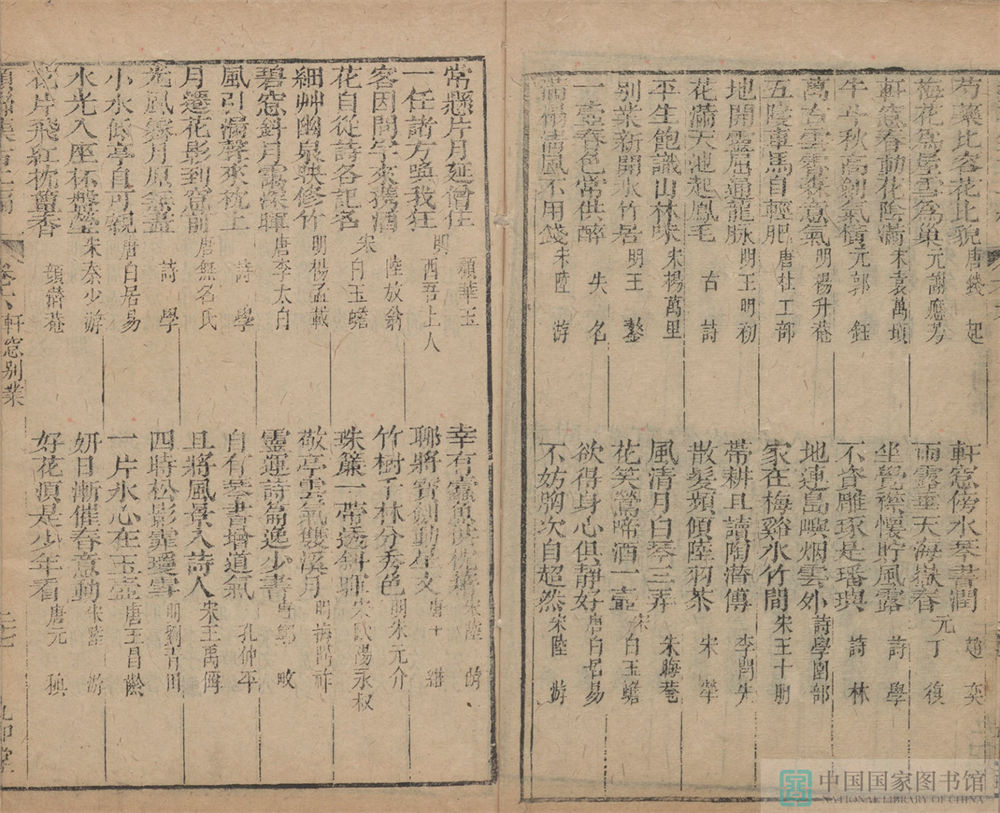 芍藥比客花比貌 唐錢起
軒窓傍水琴書潤 趙奕
梅花為屋雪為巢 元謝應芳
雨露垂天海嶽春 元丁復
軒窓春動花陰滿 宋袁萬頃
坐覺襟懷貯風露 詩學
牛斗秋高劍氣橫 元郭鈺
不容雕琢是璠璵 詩林
萬古雲霄養意氣 明楊升菴
地連島嶼烟雲外 詩學圓部
五陵車馬自輕肥 唐杜工部
家在梅谿水竹間 宋王十朋
地開靈屈通龍脉 明王明初
帶耕且讀陶潛傳 李
花滿天池起鳳毛 古詩
散髮頻傾陸羽茶 宋
平生飽識山林味 宋楊萬里
風清月白琴三弄 朱晦菴
別業新開水竹居 明王鏊
花笑鶯啼酒一壺 宋白玉蟾
一壺春色常供醉 失名
欲得身心俱靜好 唐白居易
滿榻清風不用錢 宋陸游
不妨胸次自超然 宋陸游
常懸片月延僧住 明顧華玉
幸有蠹魚供 宋陸游
一任諸方喚我狂 西吾上人
聊將寶劍動星文
客因問字來攜酒 陸放翁
竹樹千林分秀色 明朱元介
花自從詩各記名 宋白玉蟾
珠簾一帶透斜暉 宋歐陽永叔
細艸幽泉映修竹 明楊孟載
敬亭雲氣雙溪月 明梅禹祚
碧窓斜月靄深暉 唐李太白
靈運詩篇逸少書 唐鄭畋
風引濤聲來枕上 詩學
自有琴書增道氣 孔仲平
月邊花影到窓前 唐無名氏
且將風景入詩人 宋王禹偁
光風霽月原無盡 詩學
四時松影霏瓊雪 明劉青田
小水低亭自可親 唐白居易
一片氷心在玉壺 唐王昌齡
水光入座杯盤瑩 宋秦少游
妍日漸催春意動 宋陸游
花片飛紅枕簟香 顧潛菴
好花須是少年看 唐元稹
卷六 軒窓別業
中国国家图书馆
NATIONAL LIBRARY OF CHINA